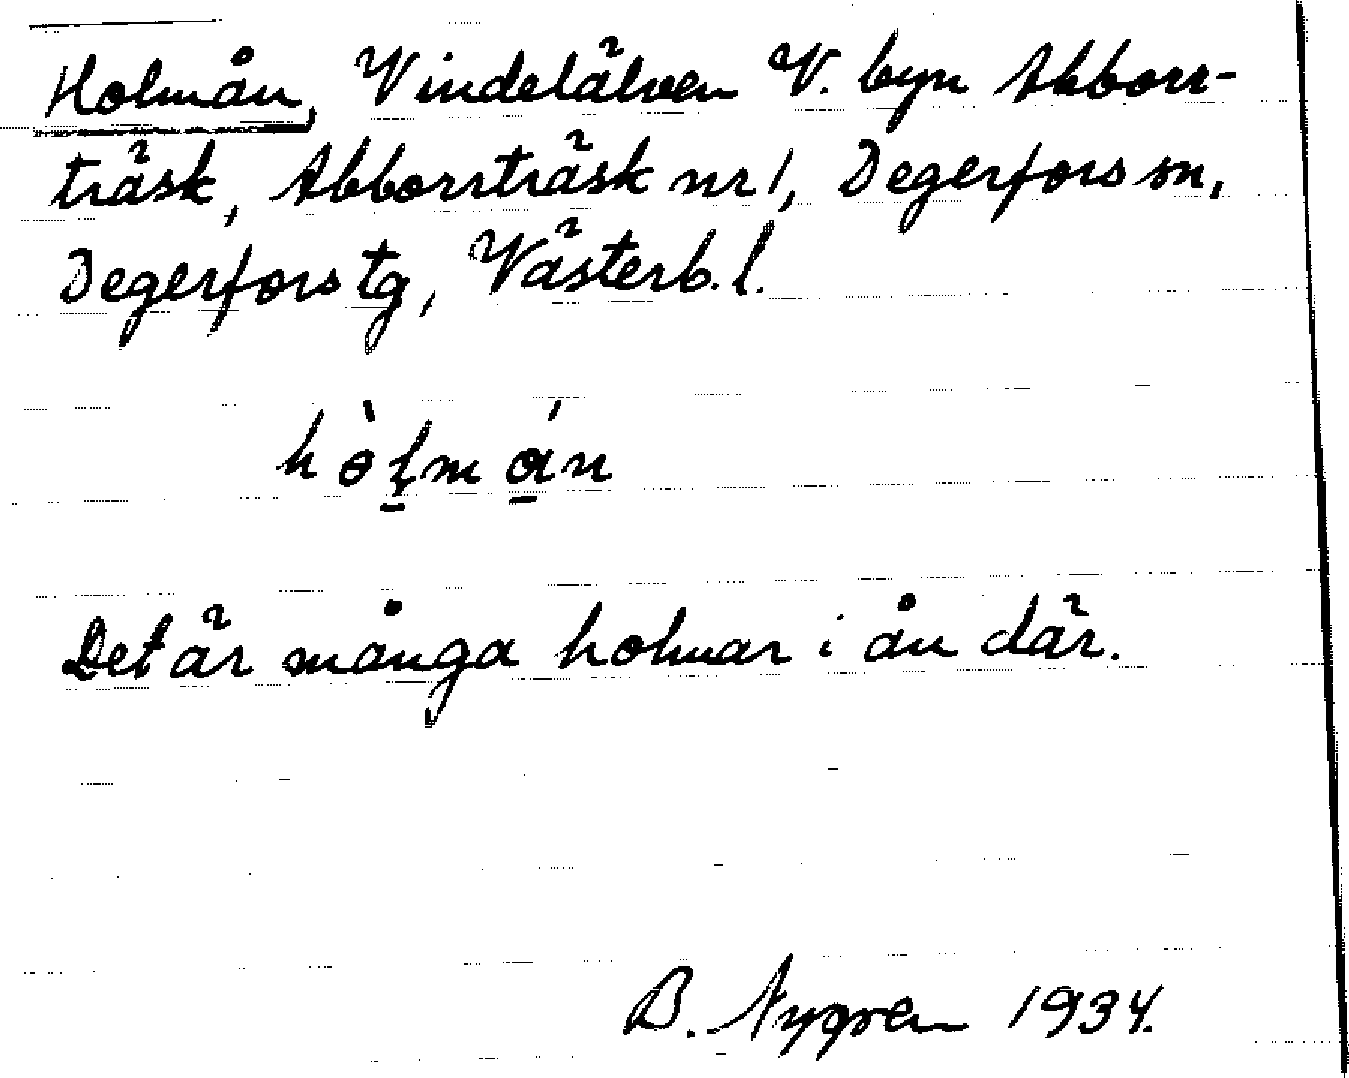 Holmån, Vindelälven V. byn Abborr-
träsk, Abborrträsk nr 1, Degerfors sn,
Degerfors tg, Västerb. l.
hòl̨mán
Det är många holmar i ån där.
B. Nygren 1934.